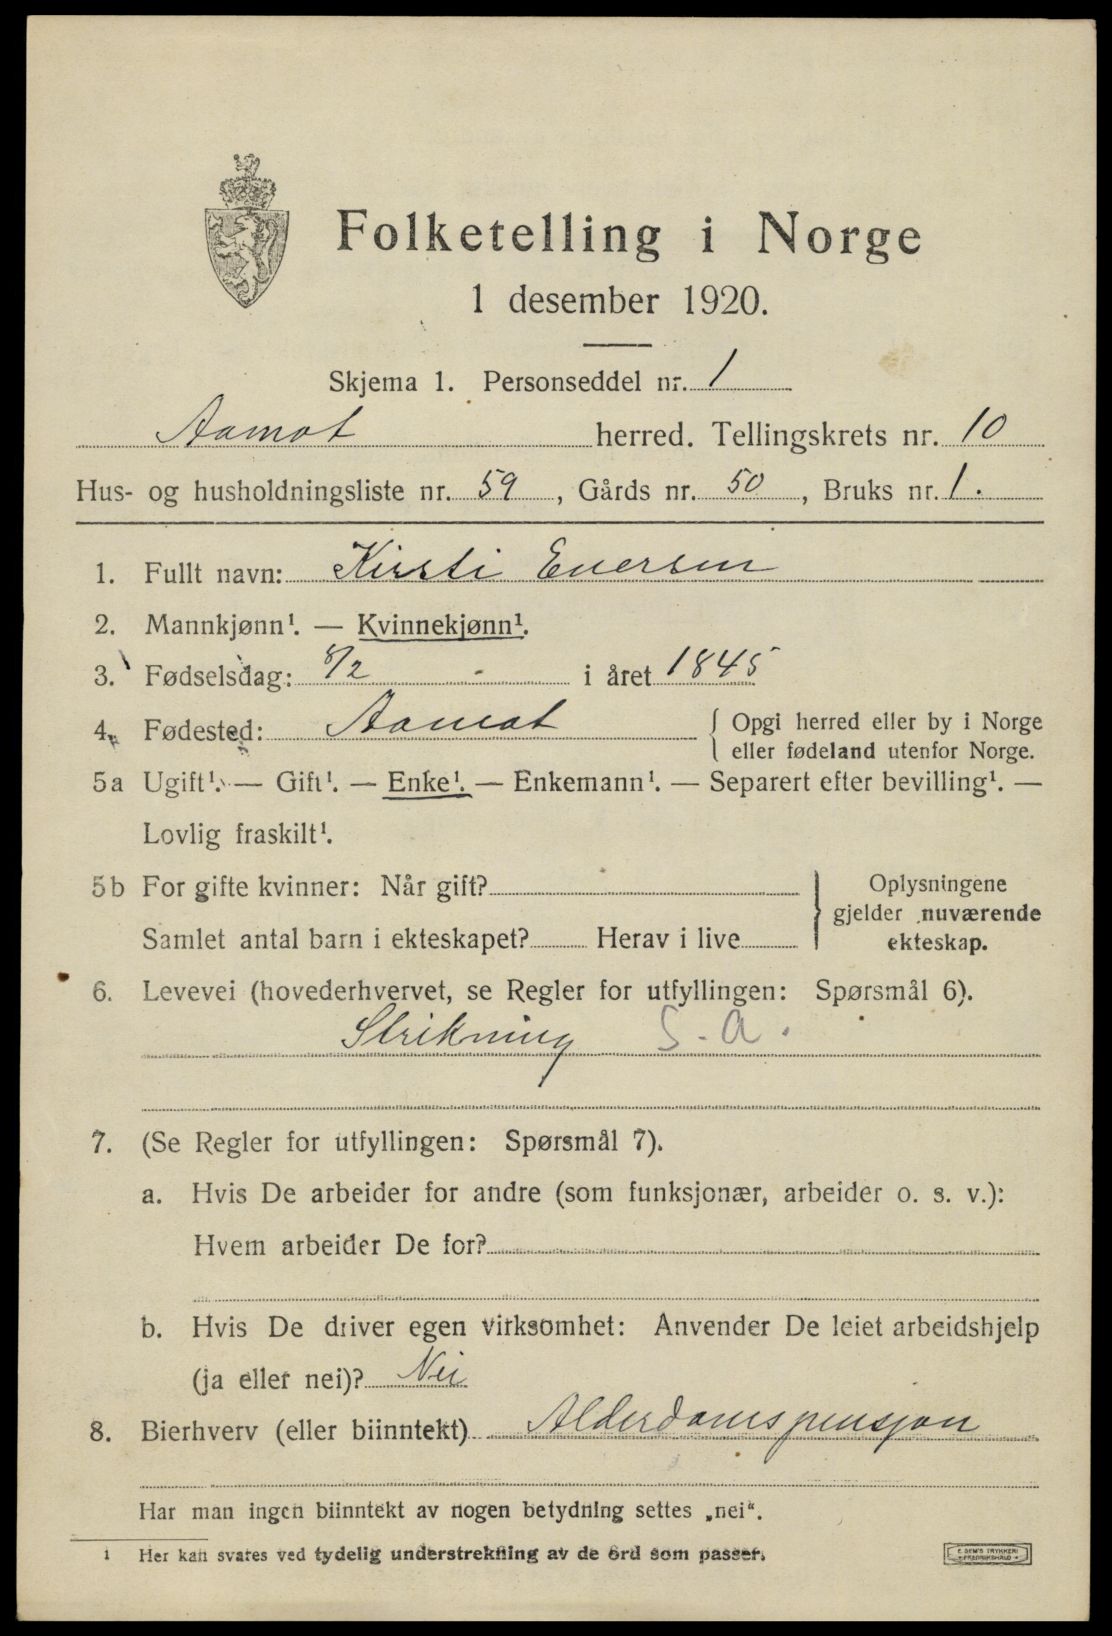 Folketelling i Norge
1 desember 1920.
Skjema 1. Personseddel nr. 1
Aamot herred. Tellingskrets nr. 10
Hus- og husholdningsliste nr. 59, Gårds nr. 50, Bruks nr. 1.
1. Fullt navn: Kirsti Eversen
2. Mannkjønn¹. — Kvinnekjønn¹.
3. Fødselsdag: 8/2 - i året 1845
4. Fødested: Aamot { Opgi herred eller by i Norge
eller fødeland utenfor Norge.
5a Ugift¹. — Gift¹. — Enke¹. — Enkemann¹. — Separert efter bevilling¹. —
Lovlig fraskilt¹.
5b For gifte kvinner: Når gift?
Samlet antal barn i ekteskapet? Herav i live
} Oplysningene
gjelder nuværende
ekteskap.
6. Levevei (hovederhvervet, se Regler for utfyllingen: Spørsmål 6).
Strikning S. a.
7. (Se Regler for utfyllingen: Spørsmål 7).
a. Hvis De arbeider for andre (som funksjonær, arbeider o. s. v.):
Hvem arbeider De for?
b. Hvis De driver egen virksomhet: Anvender De leiet arbeidshjelp
(ja eller nei)? Nei
8. Bierhverv (eller biinntekt) Alderdomspensjon
Har man ingen biinntekt av nogen betydning settes „nei“.
1 Her kan svares ved tydelig understrekning av de ord som passer.
E. SEM'S TRYKKERI
FREDRIKSHALD